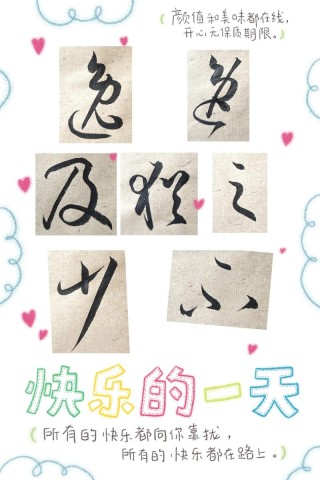 颜值和美味都在线，
开心无保质期限。
及 之
少
快乐的一天
所有的快乐都向你靠拢，
所有的快乐都在路上。